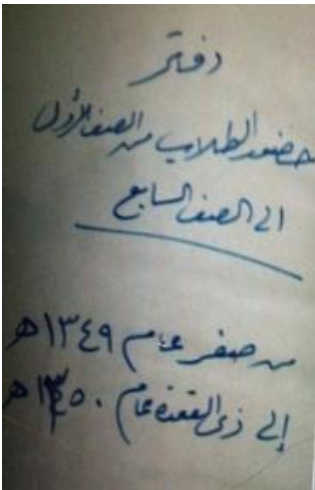 دفتر
حضور الطلاب من الصف الأول
الى الصف السابع
من صفر عام ١٣٤٩ه
إلى ذى القعدة عام ١٣٥٠ه